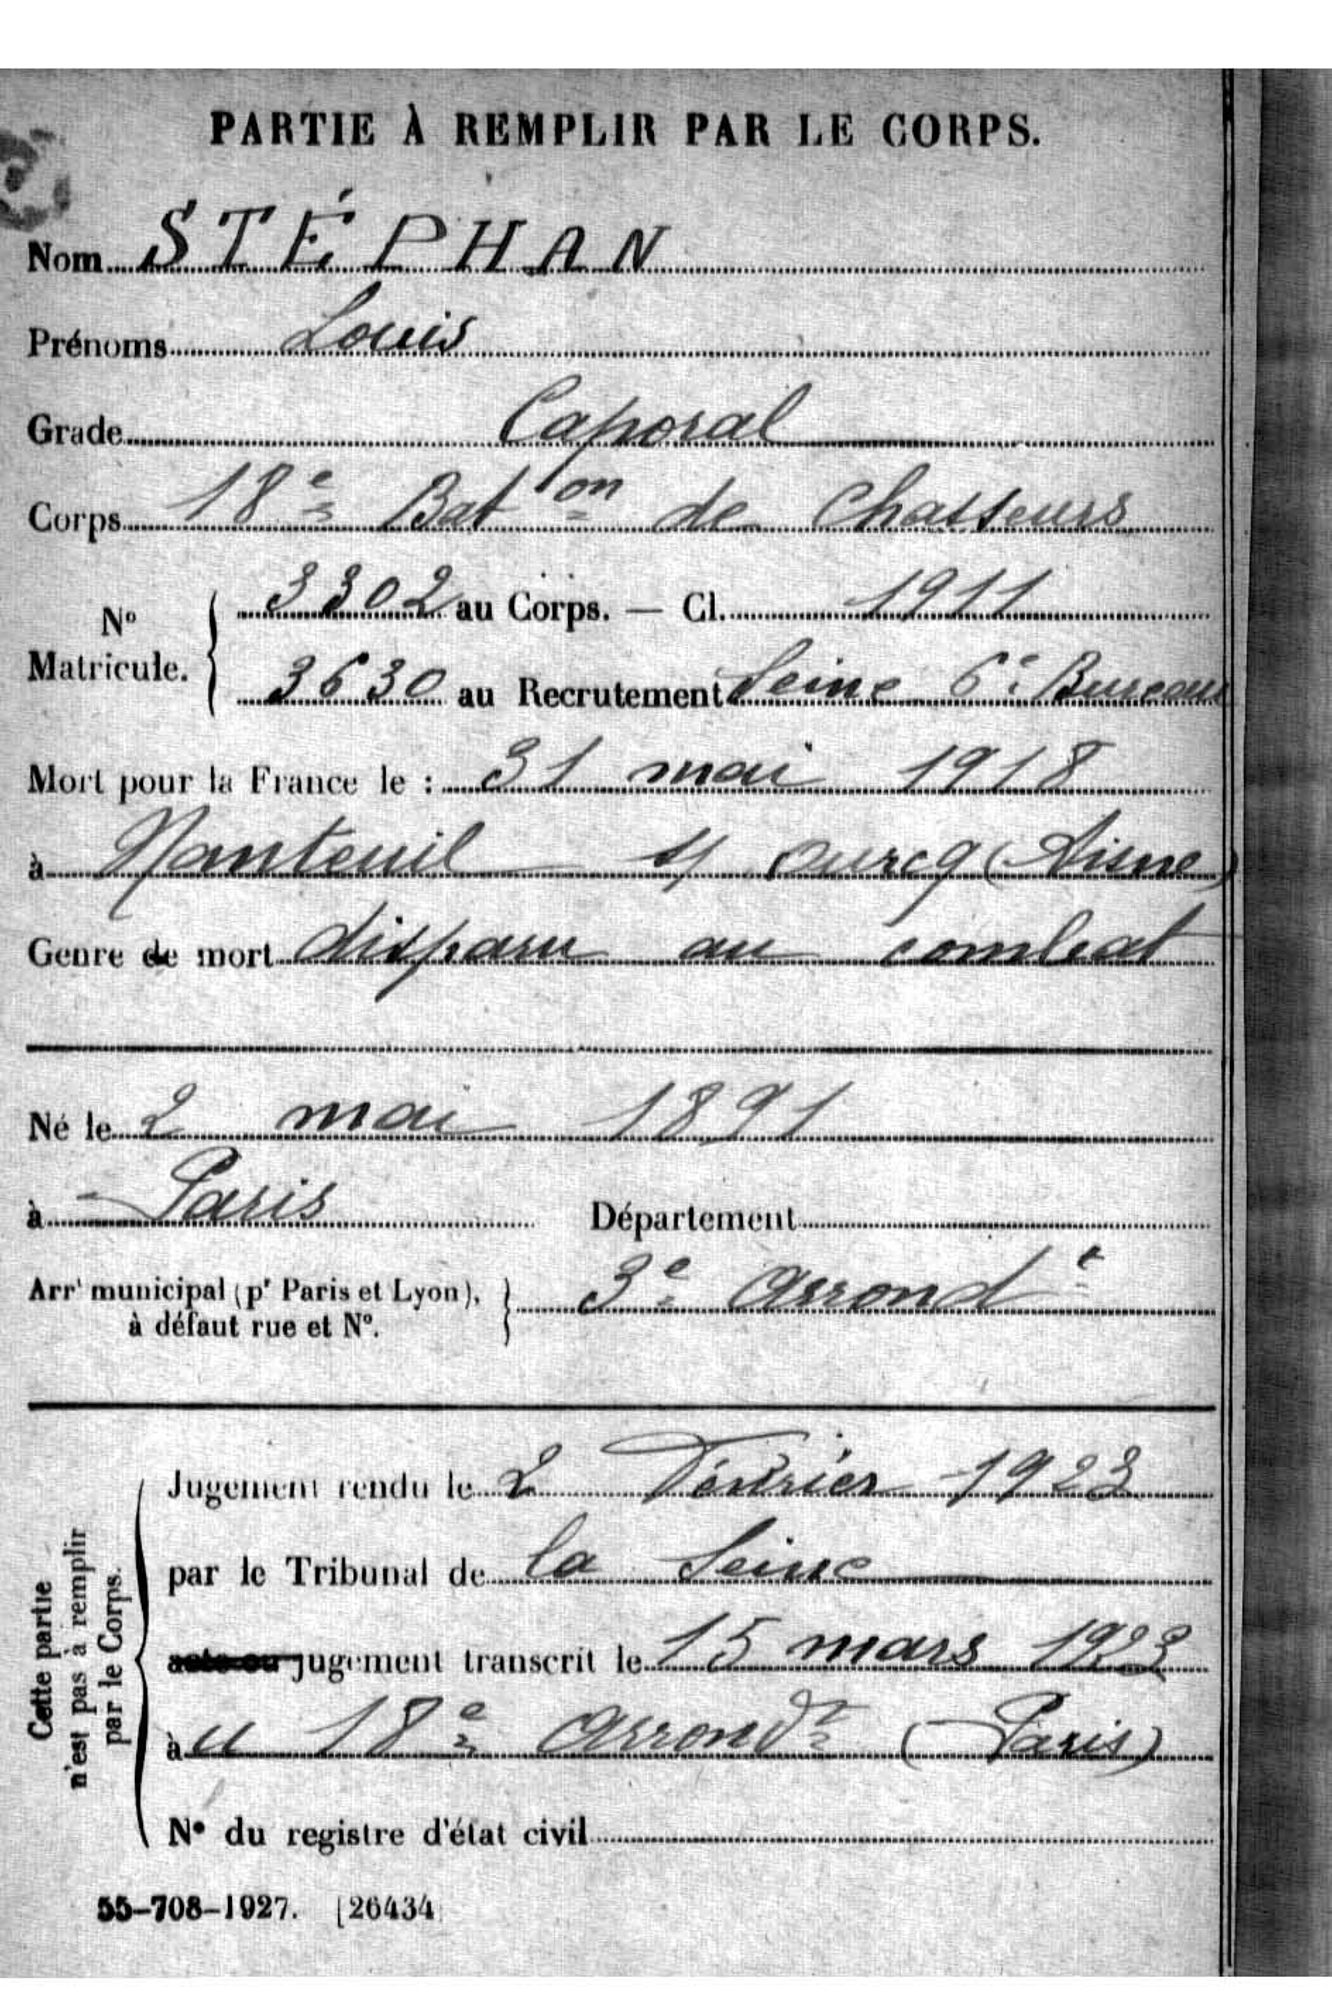 PARTIE À REMPLIR PAR LE CORPS.
Nom STÉPHAN
Prénoms Louis
Grade Caporal
Corps 18e Bat on de Chasseurs
No Matricule. 3302 au Corps. — Cl. 1911
3630 au Recrutement Seine 6e Bureau
Mort pour la France le : 31 mai 1918
à Nanteuil s/ ourcq (Aisne)
Genre de mort disparu au combat
Né le 2 mai 1891
à Paris Département
Arrt municipal (pr Paris et Lyon), à défaut rue et No. 3e arrondt
Cette partie n'est pas à remplir par le Corps.
Jugement rendu le 2 Février 1923
par le Tribunal de la Seine
acte ou jugement transcrit le 15 mars 1923
à u 18e arrondt (Paris)
No du registre d'état civil
55-708-1927. [26434